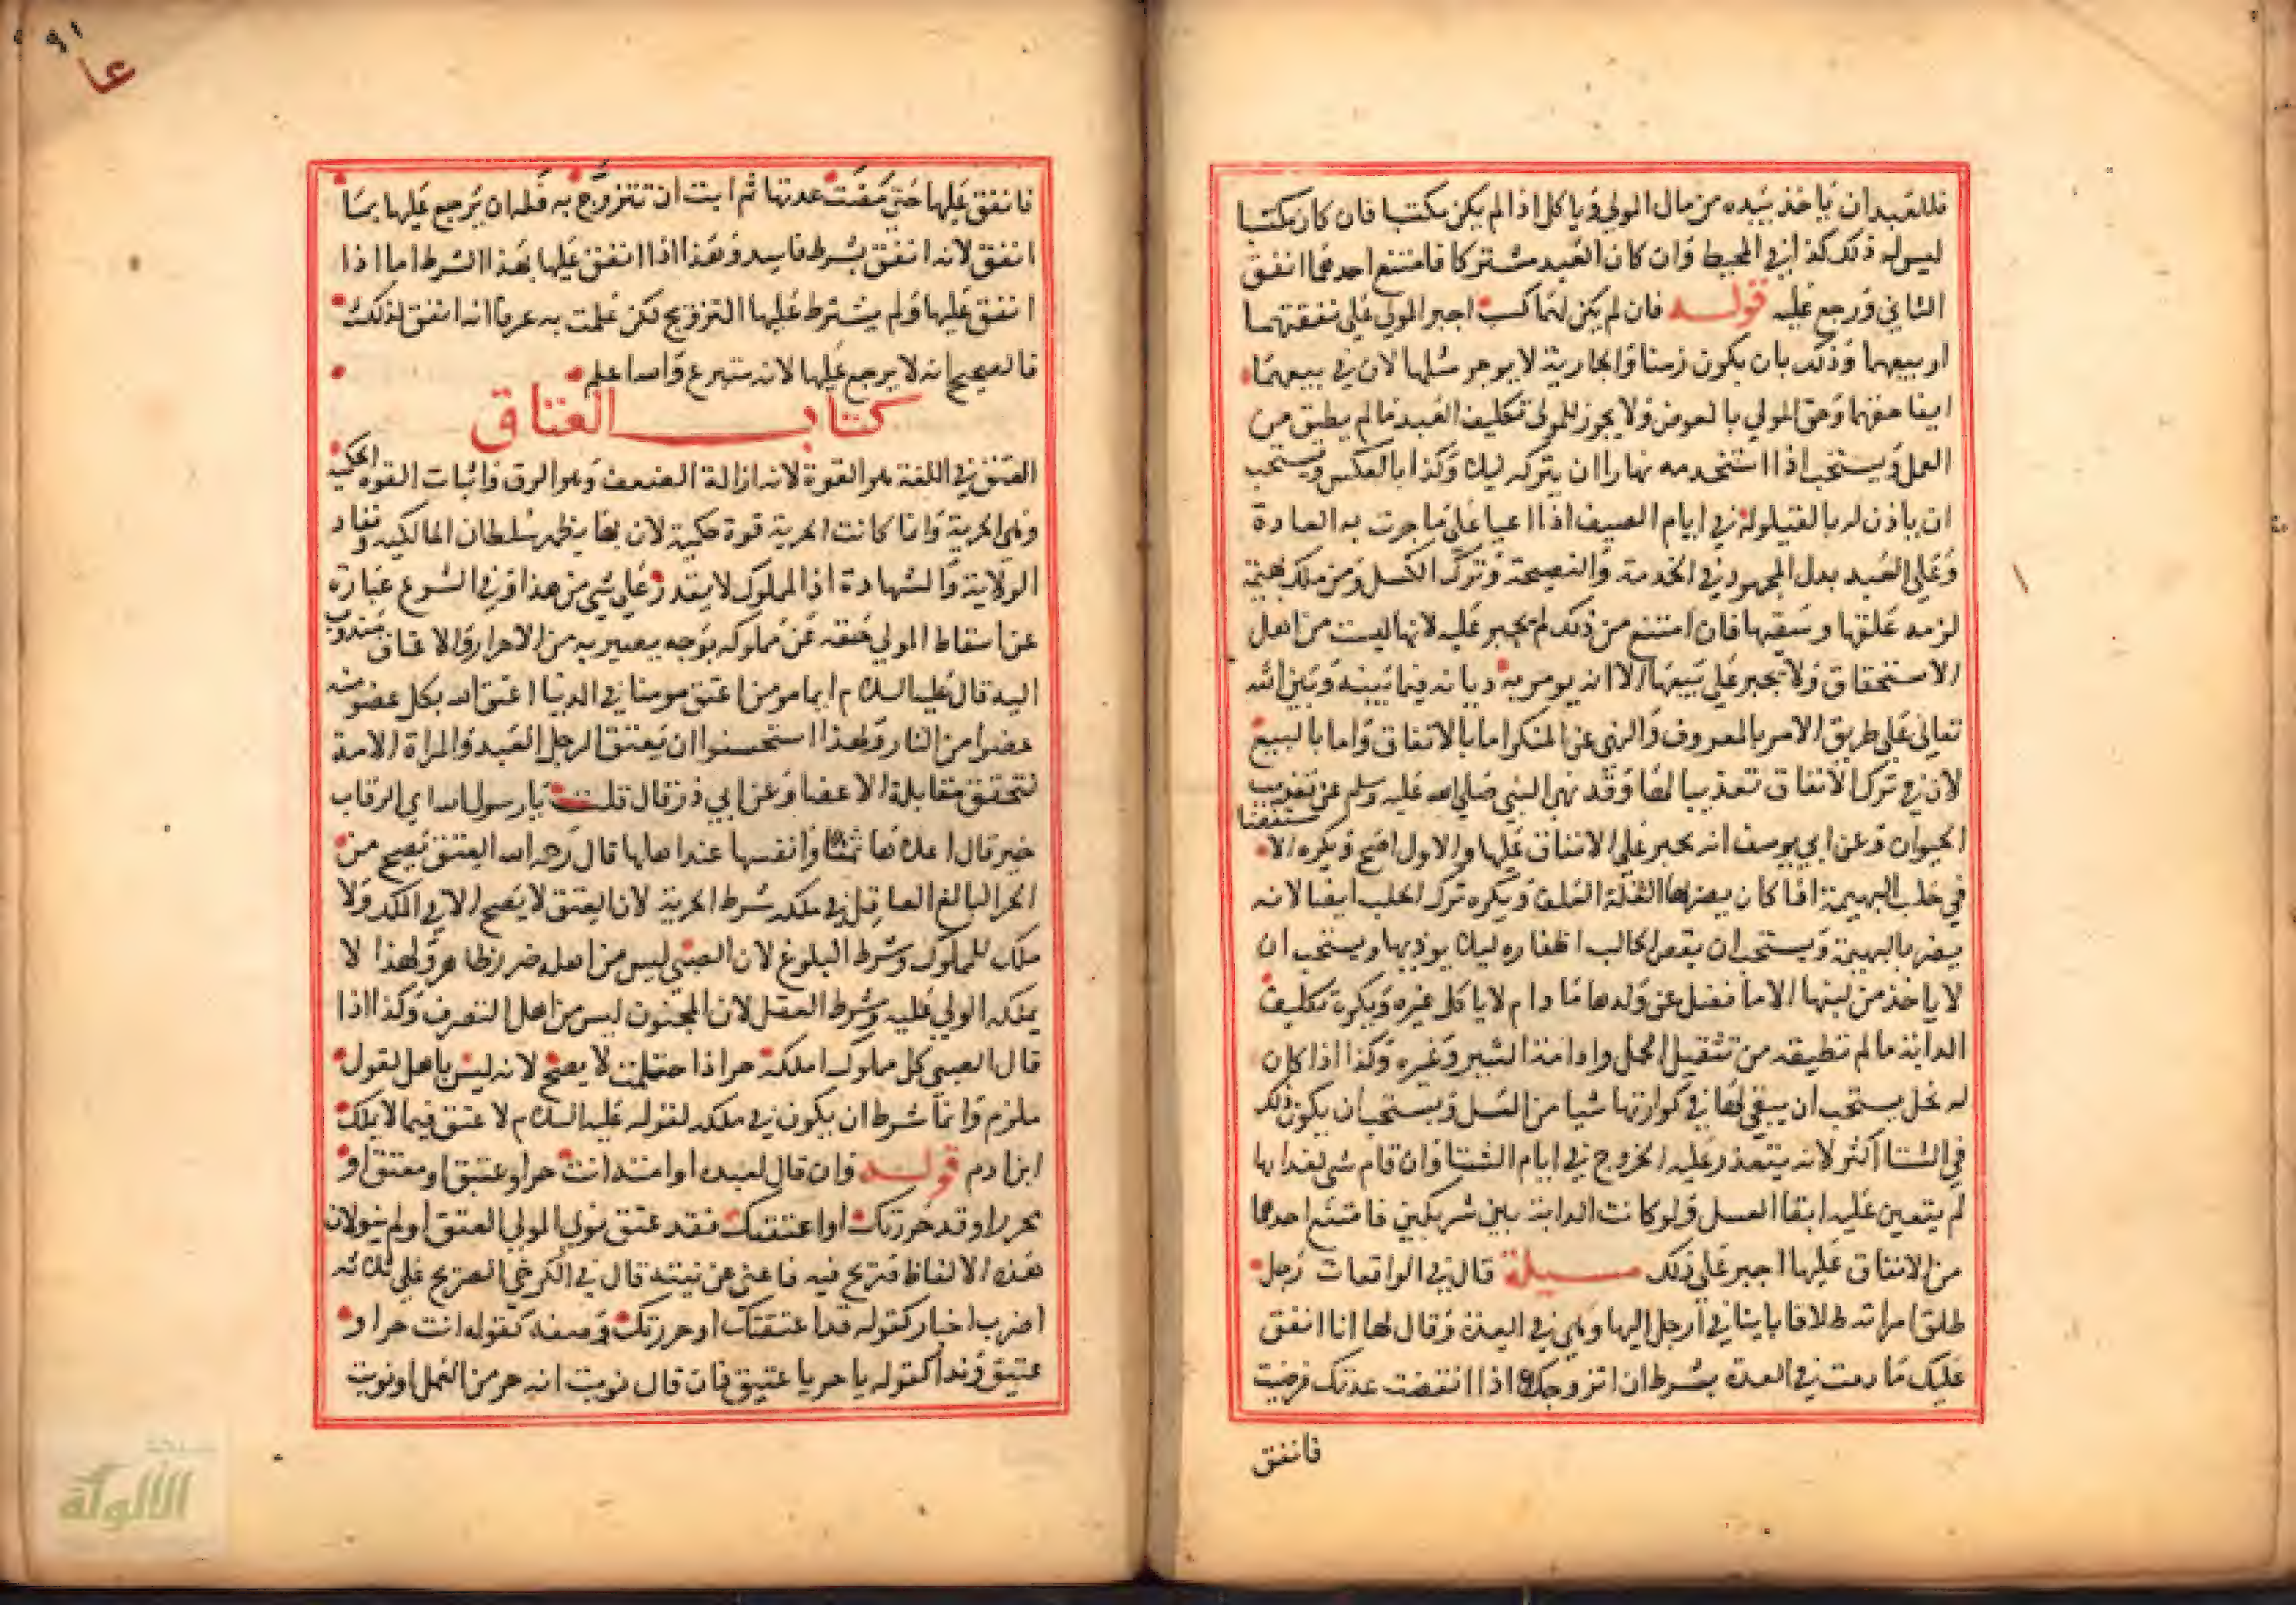 فللعبد ان ياخذ بيده من مال المولي وياكل اذا لم يكن مكتسبا فان كان مكتسبا
ليس له ذلك كذا في المحيط وان كان العبد مشتركا فامتنع احدهما انفق
الثاني ورجع عليه قوله فان لم يكن لهما كسب اجبر المولي علي نفقتهما
او بيعهما وذلك بان يكون زمنا والجارية لا يوجر مثلها لان في بيعهما
ايفا حقهما وحق المولي بالعوض ولا يجوز للمولي تكليف العبد ما لم يطيق من
العمل ويستحب اذا استخدمه نهارا ان يتركه ليلا وكذا بالعكس ويستحب
ان ياذن له بالقيلولة في ايام الصيف اذا اعيا علي ما جرت به العادة
وعلي العبد بذل المجهود في الخدمة والنصيحة وترك الكسل ومن ملك بهيمة
لزمه علفها وسقيها فان امتنع من ذلك لم يجبر عليه لانها ليست من اهل
الاستحقاق ولا يجبر علي بيعها الا انه يومر به ديانة فيما بينه وبين الله
تعالي علي طريق الامر بالمعروف والنهي عن المنكر اما بالانفاق واما بالبيع
لان في ترك الانفاق تعذيبا لها وقد نهي النبي صلي الله عليه وسلم عن تعذيب
الحيوان وعن ابي يوسف انه يجبر علي الانفاق عليها والاول اصح ويكره الاستقصا
في حلب البهيمة اذا كان يضرها لقلة العلف ويكره ترك الحلب ايضا لانه
يضر بالبهيمة ويستحب ان يقص الحالب اظفاره ليلا يوذيها ويستحب ان
لا ياخذ من لبنها الا ما فضل عن ولدها ما دام لا ياكل غيره ويكره تكليف
الدابة ما لم تطيقه من تثقيل الحمل وادامة السير وغيره وكذا اذا كان
له نحل يستحب ان يبقي لها في كوارتها شيا من العسل ويستحب ان يكون ذلك
في الشتا اكثر لانه يتعذر عليه الخروج في ايام الشتا وان قام شي لغدايها
لم يتعين عليه ابقا العسل ولو كانت الدابة بين شريكين فامتنع احدهما
من الانفاق عليها اجبر علي ذلك مسيلة قال في الواقعات رجل
طلق امراته طلاقا باينا في ارجل اليها وهي في العدة وقال لها انا انفق
عليك ما دمت في العدة بشرط ان اتزوجك اذا انقضت عدتك فرضيت
فانفق
٩١
فانفق عليها حتي مضت عدتها ثم ابت ان تتزوج به فله ان يرجع عليها بما
انفق لانه انفق بشرط فاسد وهذا اذا انفق عليها بهذا الشرط اما اذا
انفق عليها ولم يشترط عليها التزويج لكن علمت به عرفا انه انفق لذلك
فالصحيح انه لا يرجع عليها لانه متبرع والله اعلم
كتاب العتاق
العتق في اللغة هو القوة لانه ازالة الضعف وهو الرق واثبات القوة الحكمية
وهي الحرية وانما كانت الحرية قوة حكمية لان بها يظهر سلطان المالكية ونفاد
الولاية والشهادة اذ المملوك لا يقدر علي شي من هذا وفي الشرع عبارة
عن اسقاط المولي حقه عن مملوكه بوجه يصير به من الاحرار والاعتاق مندوب
اليه قال عليه السلام ايما مومن اعتق مومنا في الدنيا اعتق الله بكل عضو منه
عضوا من النار ولهذا استحسنوا ان يعتق الرجل العبد والمراة الامة
لتحقق مقابلة الاعضا وعن ابي ذر قال قلت يا رسول الله اي الرقاب
خير قال اغلاها ثمنا وانفسها عند اهلها قال رحمه الله العتق يصح من
الحر البالغ العاقل في ملكه شرط الحرية لان العتق لا يصح الا في الملك ولا
ملك للمملوك وشرط البلوغ لان الصبي ليس من اهله ضرر ظاهر ولهذا لا
يملكه الولي عليه وشرط العقل لان المجنون ليس من اهل التصرف وكذا اذا
قال الصبي كل مملوك املكه حر اذا احتلمت لا يصح لانه ليس باهل لقول
ملزم وانما شرط ان يكون في ملكه لقوله عليه السلام لا عتق فيما لا يملك
ابن ادم قوله وان قال لعبده او امته انت حر او عتيق او معتق او
محرر او قد حررتك او اعتقتك فقد عتق نوي المولي العتق او لم ينو لان
هذه الالفاظ صريح فيه فاغني عن نيته قال في الكرخي الصريح علي ثلاثه
اضرب اخبار كقوله قد اعتقتك او حررتك وصفه كقوله انت حر او
عتيق وندا كقوله يا حر يا عتيق فان قال نويت انه حر من العمل او نويت
الألوكة